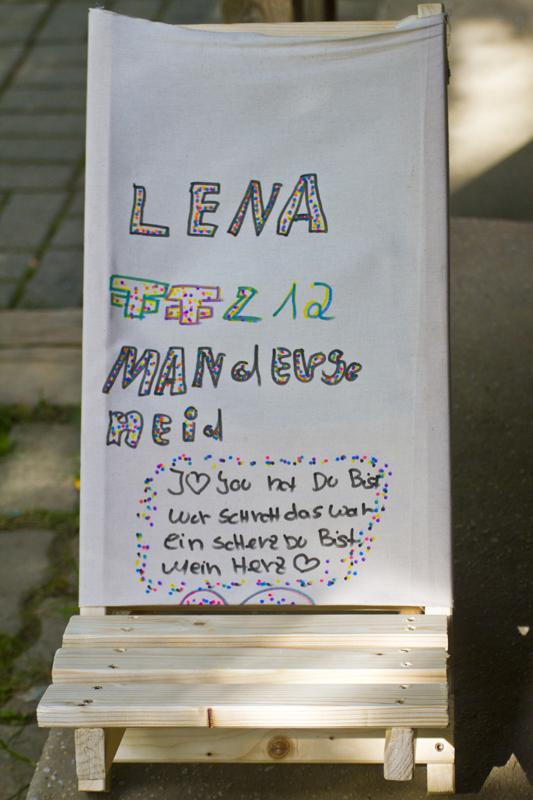 LENA
FFZ 12
MANdERSCHE
HEid
I ♡ you not Du Bist
nur Schrott das war
ein scHerz Du Bist
Mein Herz ♡